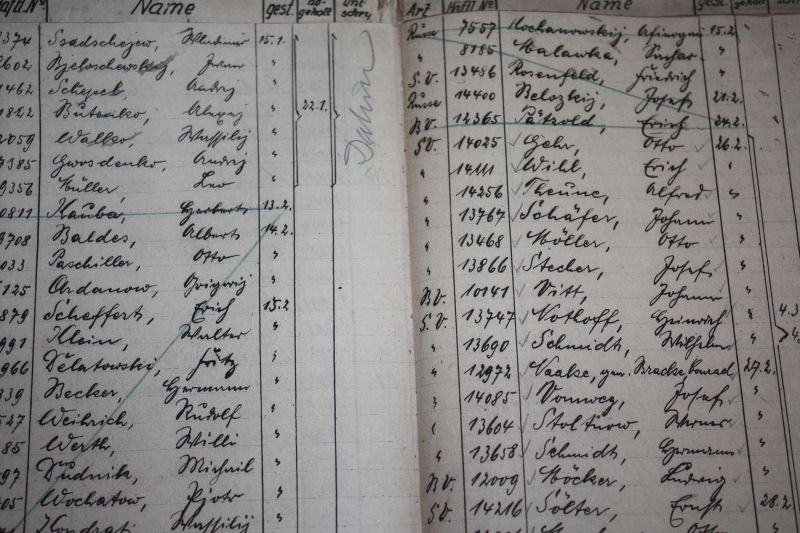 Häftl No Name gest. ab- geholt Unt- schr.
3374 Sadschejew, Wladimir 15.1.
2602 Bjeloschewskij Iwan "
1462 Andrej "
1822 Butenko, Alexej " 22.1.
2059 Walko, Wassilij "
7385 Gwosdenko, Andrej "
9356 Müller, Leo "
0811 Kauba, Herbert 13.2.
9708 Baldes, Albert 14.2.
033 Paschiller, Otto "
125 Ardanow, Grigorij "
879 Scheffert, Erich 15.2
991 Klein, Walter "
966 Delatowski, Fritz "
339 Becker, Hermann "
527 Weibrich, Rudolf "
85 Werth, Willi "
97 Dudnik, Michail "
05 Wochatow, Piotr "
Kondrati Wassilij "
Art Häftl No Name gest. geholt
Russe 7557 Kochanowskij, 15.2.
" 8185 Malawka, "
S.V. 13486 Rosenfeld, Friedrich "
Russe 14400 Belozkij, Josef 21.2.
B.V. 12365 Pätzold, Erich 24.2.
S.V. 14025 Gehr, Otto 26.2.
" 14111 Wihl, Erich "
" 14256 Theune, Alfred "
" 13767 Schäfer, Johann "
" 13468 Möller, Otto "
" 13866 Stecher, Josef "
B.V. 10141 Vitt, Johann "
S.V. 13747 Nothoff, Heinrich " 4.3
" 13690 Schmidt, Wilhelm "
" 12972 Vaake, gen. Brackebonrad 27.2.
" 14085 Vomweg, Josef "
" 13604 Werner "
" 13658 Schmidt, Hermann "
B.V. 12009 Möcker, Ludwig "
S.V. 14216 Sölter, Ernst 28.2
Otto "